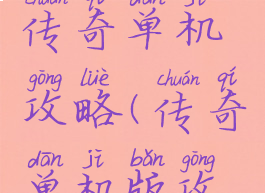 chuán qí dān jī
传奇单机
gōng lüè chuán qí
攻略(传奇
dān jī bǎn gōng
单机版攻